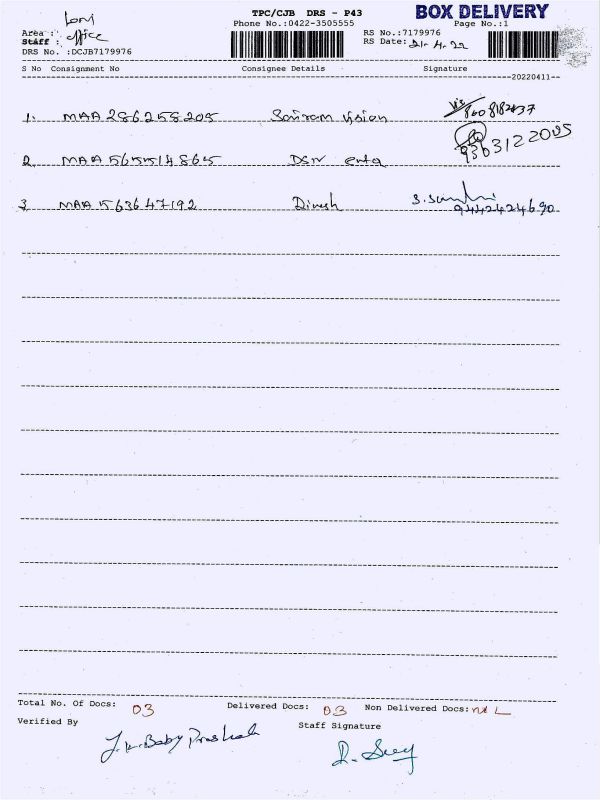 TPC/CJB DRS - P43 BOX DELIVERY
Area : Lorry
Phone No.:0422-3505555 RS No.:7179976 Page No.:1
Staff : office
RS Date: 21.4.22
DRS No. :DCJB7179976
S No Consignment No Consignee Details Signature
20220411
1. MAA 286258205 Sairam Vision
2. MAA 565514865 DSN
3 MAA 563647192 Dinesh
9442424690
Total No. Of Docs: 03 Delivered Docs: 03 Non Delivered Docs: NIL
Verified By Staff Signature